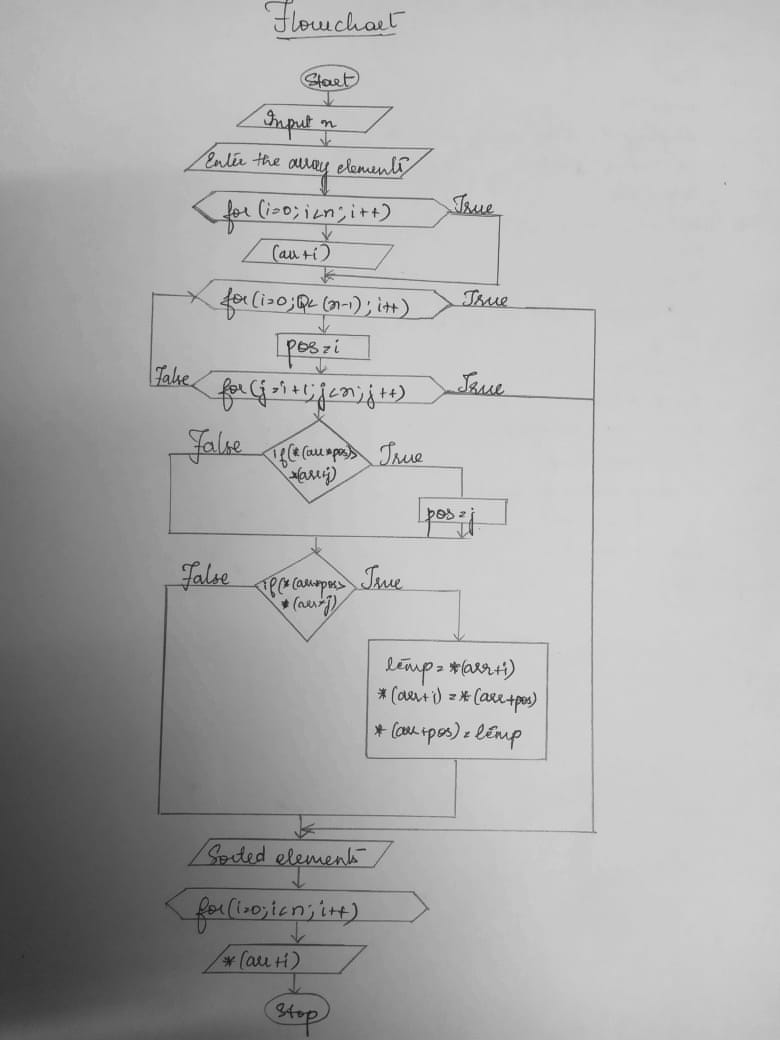 Flowchart
Start
Input n
Enter the array elements
for (i=0; i<n; i++) True
(arr+i)
for (i=0; i< (n-1); i++) True
pos=i
False for (j=i+1; j<n; j++) True
False if(*(arr+pos)> True
*(arr+j)
pos=j
False if(*(arr+pos> True
*(arr+j)
temp = *(arr+i)
*(arr+i) = *(arr+pos)
*(arr+pos) = temp
Sorted elements
for(i=0; i<n; i++)
*(arr+i)
Stop